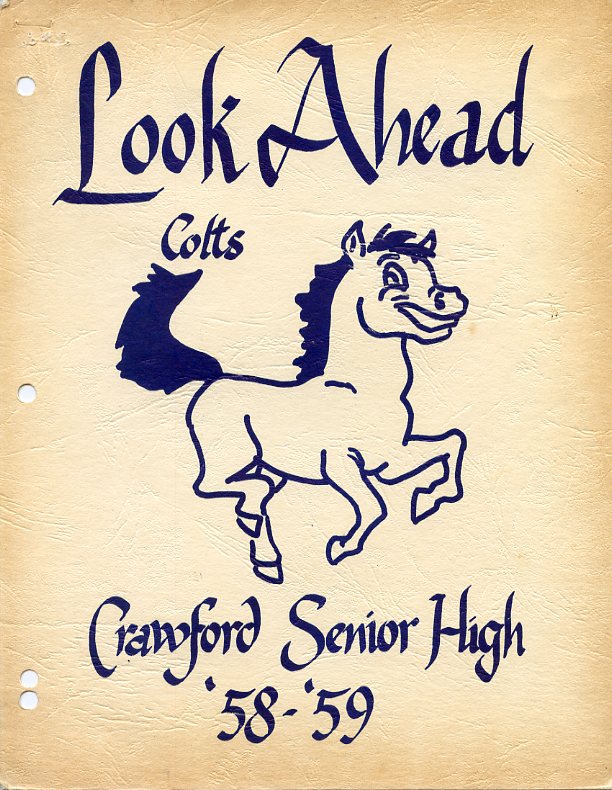 Look Ahead
Colts
Crawford Senior High
'58-'59